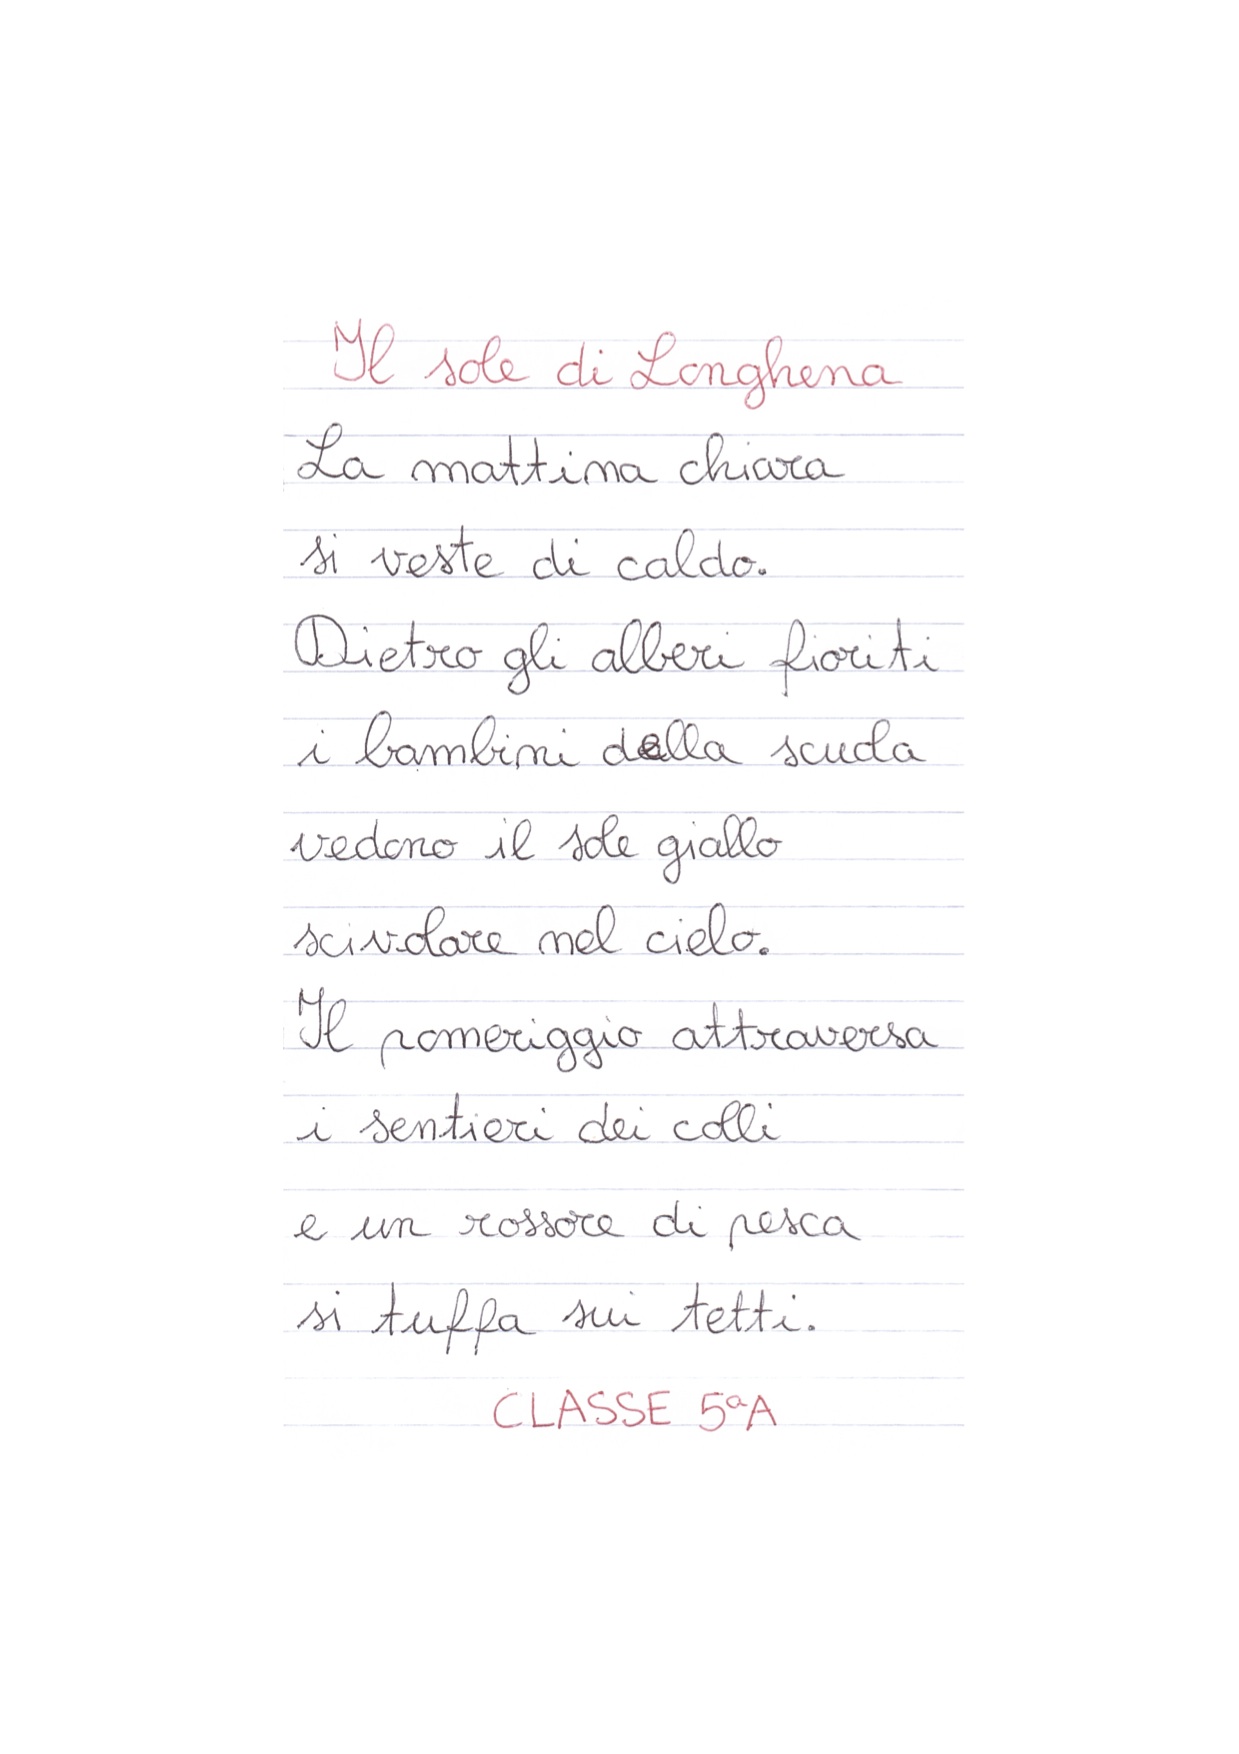 Il sole di Longhena
La mattina chiara
si veste di caldo.
Dietro gli alberi fioriti
i bambini della scuola
vedono il sole giallo
scivolare nel cielo.
Il pomeriggio attraversa
i sentieri dei colli
e un rossore di pesca
si tuffa sui tetti.
CLASSE 5ªA